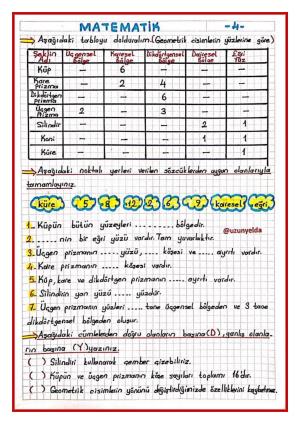 MATEMATİK -4-
Aşağıdaki tabloyu dolduralım.(Geometrik cisimlerin yüzlerine göre)
Şeklin Adı Üçgensel bölge Karesel bölge Dikdörtgensel bölge Dairesel bölge Eğri Yüz
Küp — 6 — — —
Kare prizma — 2 4 — —
Dikdörtgen prizma — — 6 — —
Üçgen Prizma 2 — 3 — —
Silindir — — — 2 1
Koni — — — 1 1
Küre — — — — 1
Aşağıdaki noktalı yerleri verilen sözcüklerden uygun olanlarıyla
tamamlayınız.
küre 5 8 12 2 6 9 karesel eğri
@uzunyelda
1- Küpün bütün yüzeyleri ........ bölgedir.
2- ..... nin bir eğri yüzü vardır. Tam yuvarlaktır.
3- Üçgen prizmanın ..... yüzü, ..... köşesi ve .... ayrıtı vardır.
4- Kare prizmanın ..... köşesi vardır.
5- Küp, kare ve dikdörtgen prizmanın ..... ayrıtı vardır.
6- Silindirin yan yüzü ...... yüzdür.
7- Üçgen prizmanın yüzleri .... tane üçgensel bölgeden ve 3 tane
dikdörtgensel bölgeden oluşur.
Aşağıdaki cümlelerden doğru olanların başına (D), yanlış olanla-
rın başına (Y) yazınız.
( ) Silindiri kullanarak çember çizebiliriz.
( ) Küpün ve üçgen prizmanın köşe sayıları toplamı 16'dır.
( ) Geometrik cisimlerin yönünü değiştirdiğimizde özelliklerini kaybetmez.